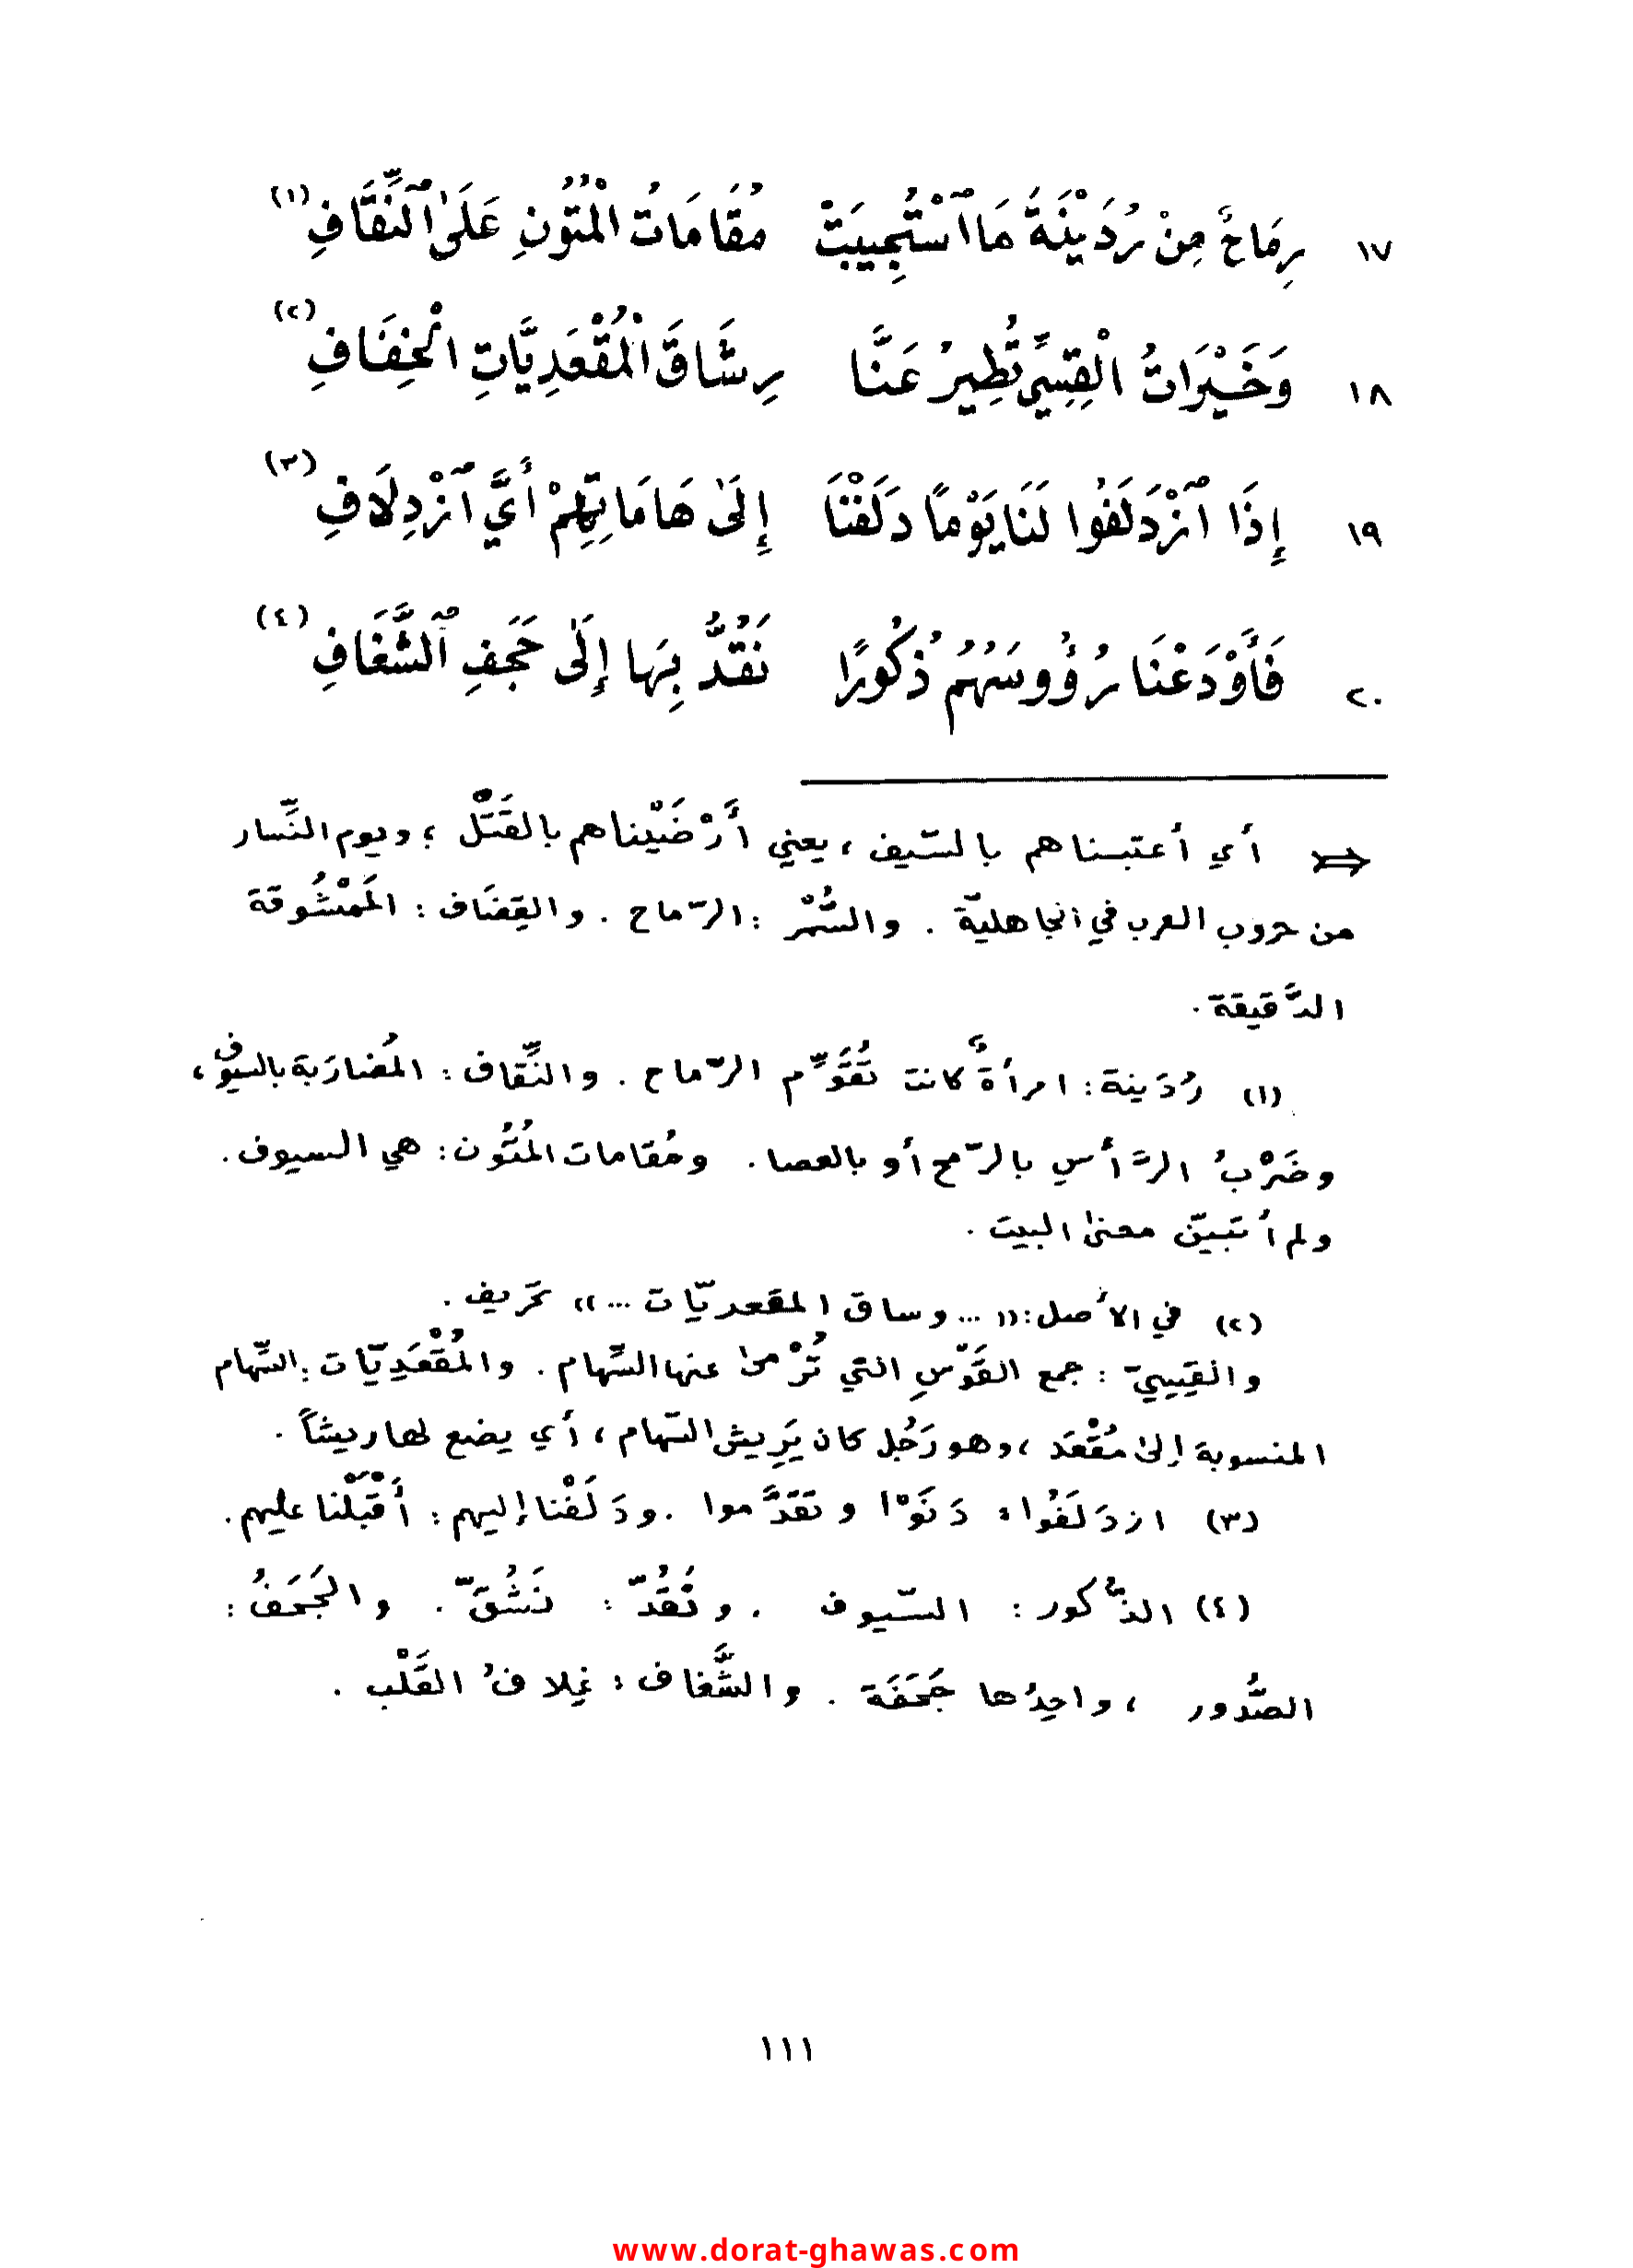 ١٧ رِمَاحٌ مِنْ رُدَيْنَةَ مَا ٱسْتُجِيبَتْ مُقَامَاتُ الْمُتُونِ عَلَىٰ ٱلنِّقَافِ (١)
١٨ وَخَيْرَاتُ الْقِسِيِّ تُطِيرُ عَنَّا رِشَاقَ الْمُقْعَدِيَّاتِ الْخِفَافِ (٢)
١٩ إِذَا ٱزْدَلَفُوا لَنَا يَوْمًا دَلَفْنَا إِلَىٰ هَامَاتِهِمْ أَيَّ ٱزْدِلَافِ (٣)
٢٠ فَأَوْدَعْنَا رُؤُوسَهُمُ ذُكُورًا نَقُدُّ بِهَا إِلَىٰ جَحَفِ ٱلشَّغَافِ (٤)
أي أعتبناهم بالسّيف ، يعني أَرْضَيْناهم بالقَتْل ؛ ويوم النِّسار
من حروب العرب في الجاهليّة . والسُّمْر : الرّماح . والقِضَاف : المَمْشُوقة
الدَّقيقة .
(١) رُدَينة : امرأةٌ كانت تُقَوِّم الرّماح . والنِّقاف : المُضارَبة بالسيوف ،
وضَرْبُ الرَّأس بالرّمح أو بالعصا . ومُقامات المُتُون : هي السيوف .
ولم أتبيّن معنىٰ البيت .
(٢) في الأصل : « ... وساق المقعديّات ... » تحريف .
والقِسِيّ : جمع القَوْسِ التي تُرْمىٰ عنها السِّهام . والمُقْعَدِيّات : السِّهام
المنسوبة إلىٰ مُقْعَد ، وهو رَجُل كان يَرِيش السّهام ، أي يضع لها ريشاً .
(٣) ازدَلَفُوا : دَنَوْا وتقَدَّموا . ودَلَفْنا إليهم : أَقْبَلْنا عليهم .
(٤) الذُّكور : السّيوف . ونَقُدّ : نَشُقّ . والجَحَفُ :
الصُّدور ، واحِدُها جَحَفَة . والشَّغاف : غِلافُ القَلْب .
١١١
www.dorat-ghawas.com